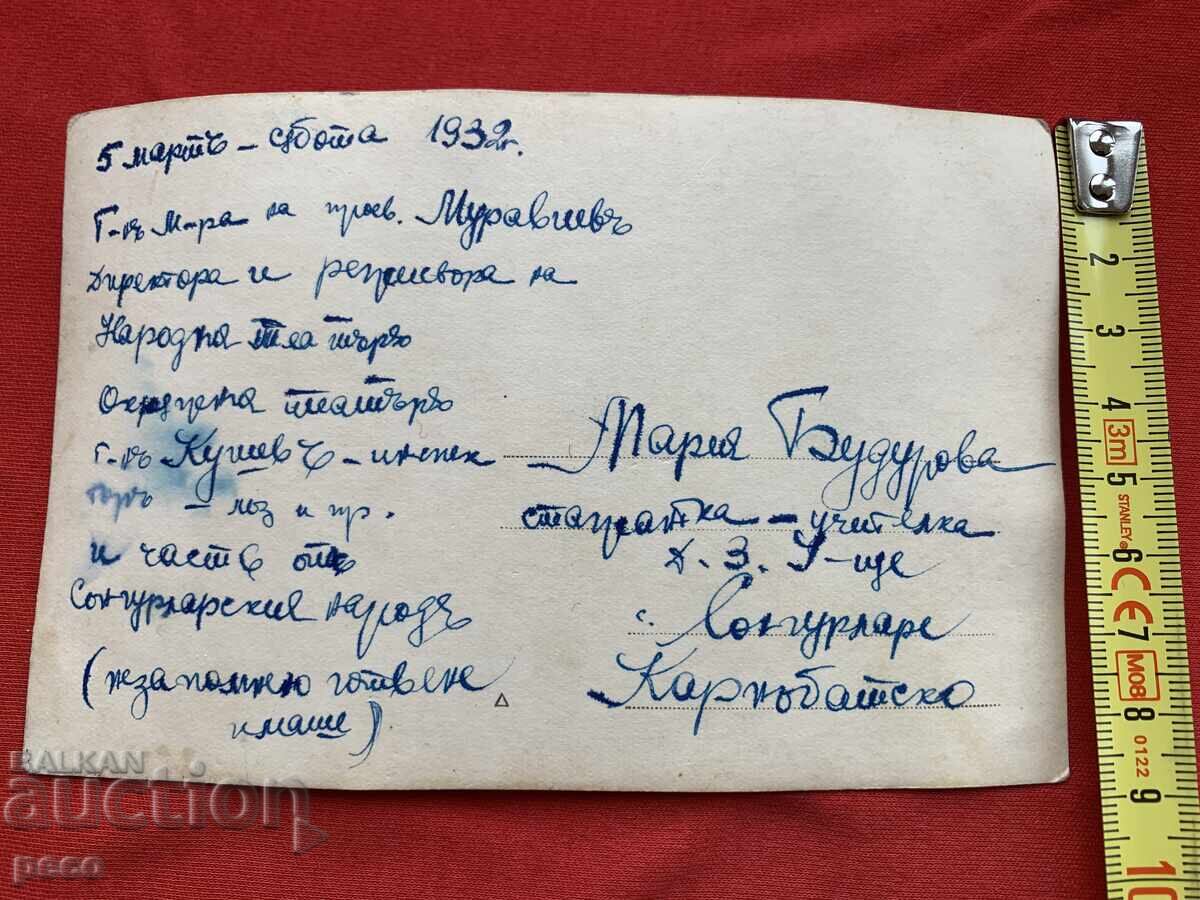 5 мартъ – сѫбота 1932 г.
Г-нъ М-ра на просв. Муравиевъ
Директора и режисьора на
Народния театъръ
г-нъ Кушевъ – инспек
торъ – лоз и пр.
и часть отъ
Сунгурларския народъ
(незапомнено готвене
имаше)
Мария Будурова
стажантка – учителка
Д. З. У-ще
с. Сонгурларе
Карнобатско
BALKAN
auction
peco
2
3
4
3m
5
STANLEY®
6
CE
7
M08
8
0122
9
10